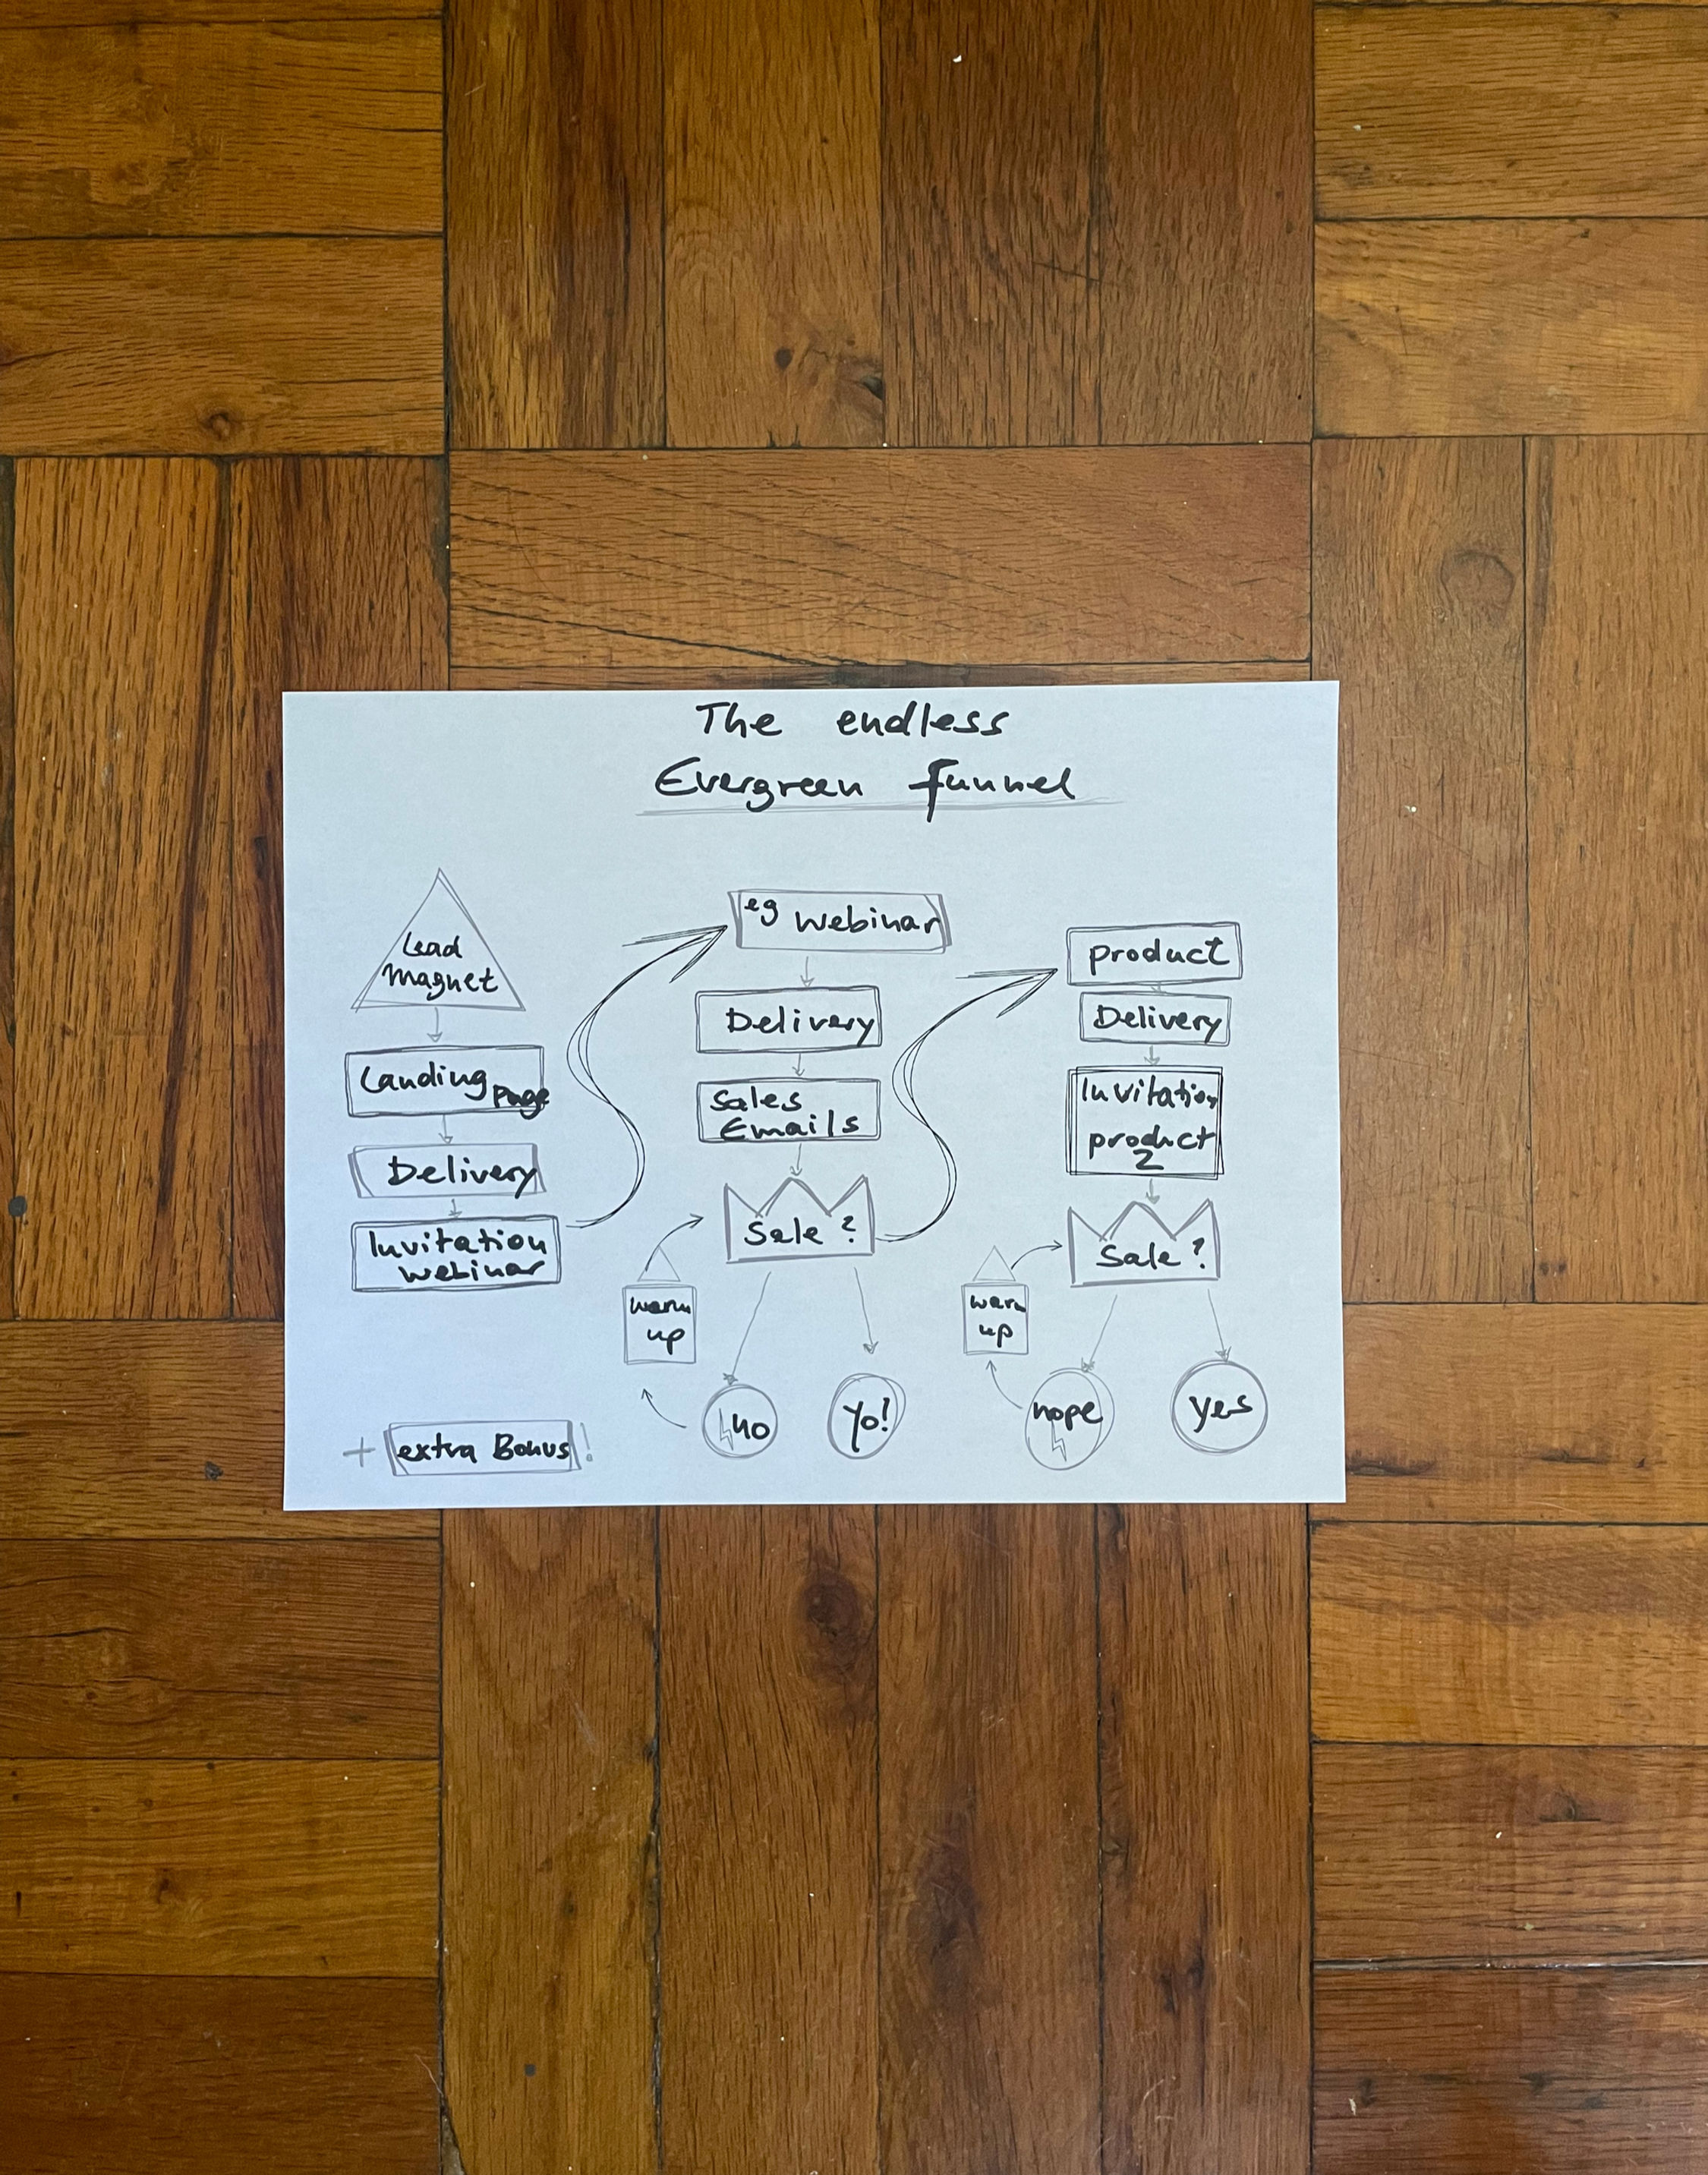 The endless
Evergreen funnel
Lead
Magnet
Landing page
Delivery
Invitation
webinar
+ extra Bonus!
eg webinar
Delivery
Sales
Emails
Sale?
warm
up
no
yo!
product
Delivery
Invitation
product
2
Sale?
warm
up
nope
yes